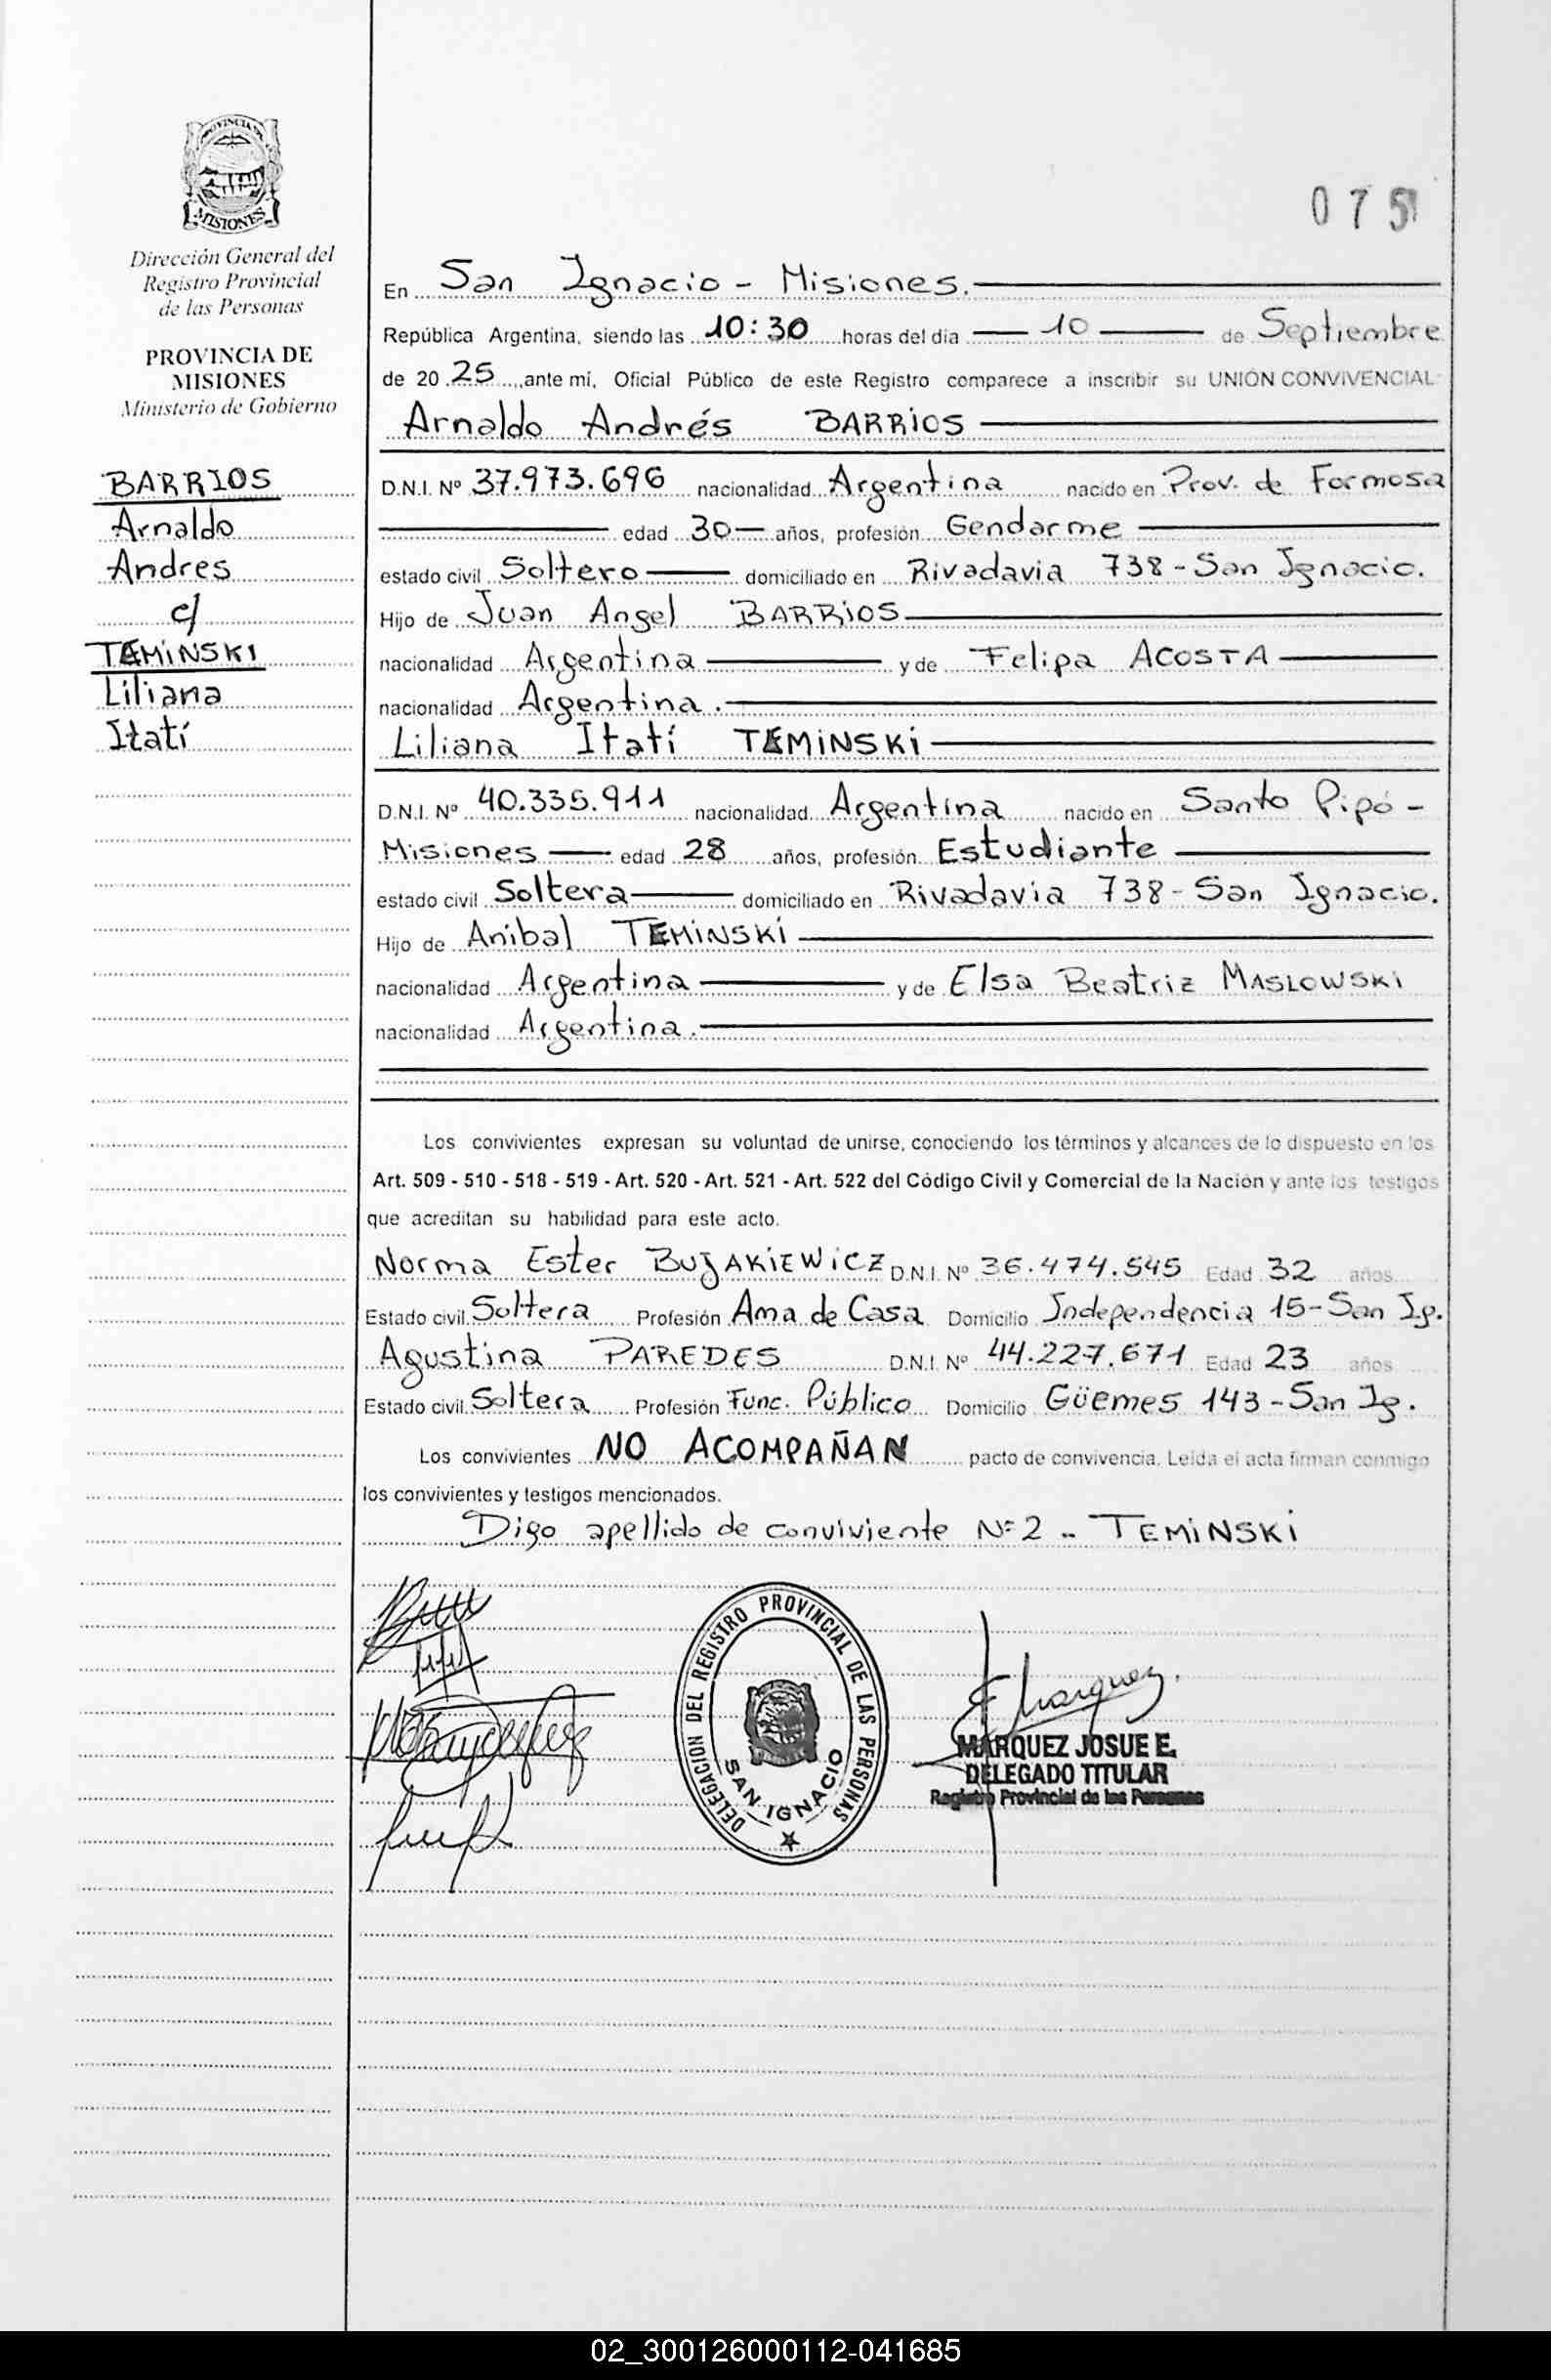 PROVINCIA DE
MISIONES
Dirección General del
Registro Provincial
de las Personas
PROVINCIA DE
MISIONES
Ministerio de Gobierno
BARRIOS
Arnaldo
Andres
c/
TEMINSKI
Liliana
Itatí
075
En San Ignacio - Misiones.
República Argentina, siendo las 10:30 horas del día 10 de Septiembre
de 20 25, ante mí, Oficial Público de este Registro comparece a inscribir su UNIÓN CONVIVENCIAL
Arnaldo Andrés BARRIOS
D.N.I. Nº 37.973.696 nacionalidad Argentina nacido en Prov. de Formosa
edad 30 años, profesión Gendarme
estado civil Soltero domiciliado en Rivadavia 738 - San Ignacio.
Hijo de Juan Angel BARRIOS
nacionalidad Argentina y de Felipa ACOSTA
nacionalidad Argentina.
Liliana Itatí TEMINSKI
D.N.I. Nº 40.335.911 nacionalidad Argentina nacido en Santo Pipó -
Misiones edad 28 años, profesión Estudiante
estado civil Soltera domiciliado en Rivadavia 738 - San Ignacio.
Hijo de Anibal TEMINSKI
nacionalidad Argentina y de Elsa Beatriz MASLOWSKI
nacionalidad Argentina.
Los convivientes expresan su voluntad de unirse, conociendo los términos y alcances de lo dispuesto en los
Art. 509 - 510 - 518 - 519 - Art. 520 - Art. 521 - Art. 522 del Código Civil y Comercial de la Nación y ante los testigos
que acreditan su habilidad para este acto.
Norma Ester BUJAKIEWICZ D.N.I. Nº 36.474.545 Edad 32 años
Estado civil Soltera Profesión Ama de Casa Domicilio Independencia 15 - San Ig.
Agustina PAREDES D.N.I. Nº 44.227.671 Edad 23 años
Estado civil Soltera Profesión Func. Público Domicilio Güemes 143 - San Ig.
Los convivientes NO ACOMPAÑAN pacto de convivencia. Leída el acta firman conmigo
los convivientes y testigos mencionados.
Digo apellido de conviviente Nº 2 - TEMINSKI
DELEGACION DEL REGISTRO PROVINCIAL DE LAS PERSONAS
SAN IGNACIO
Marquez
MARQUEZ JOSUE E.
DELEGADO TITULAR
Registro Provincial de las Personas
02_300126000112-041685